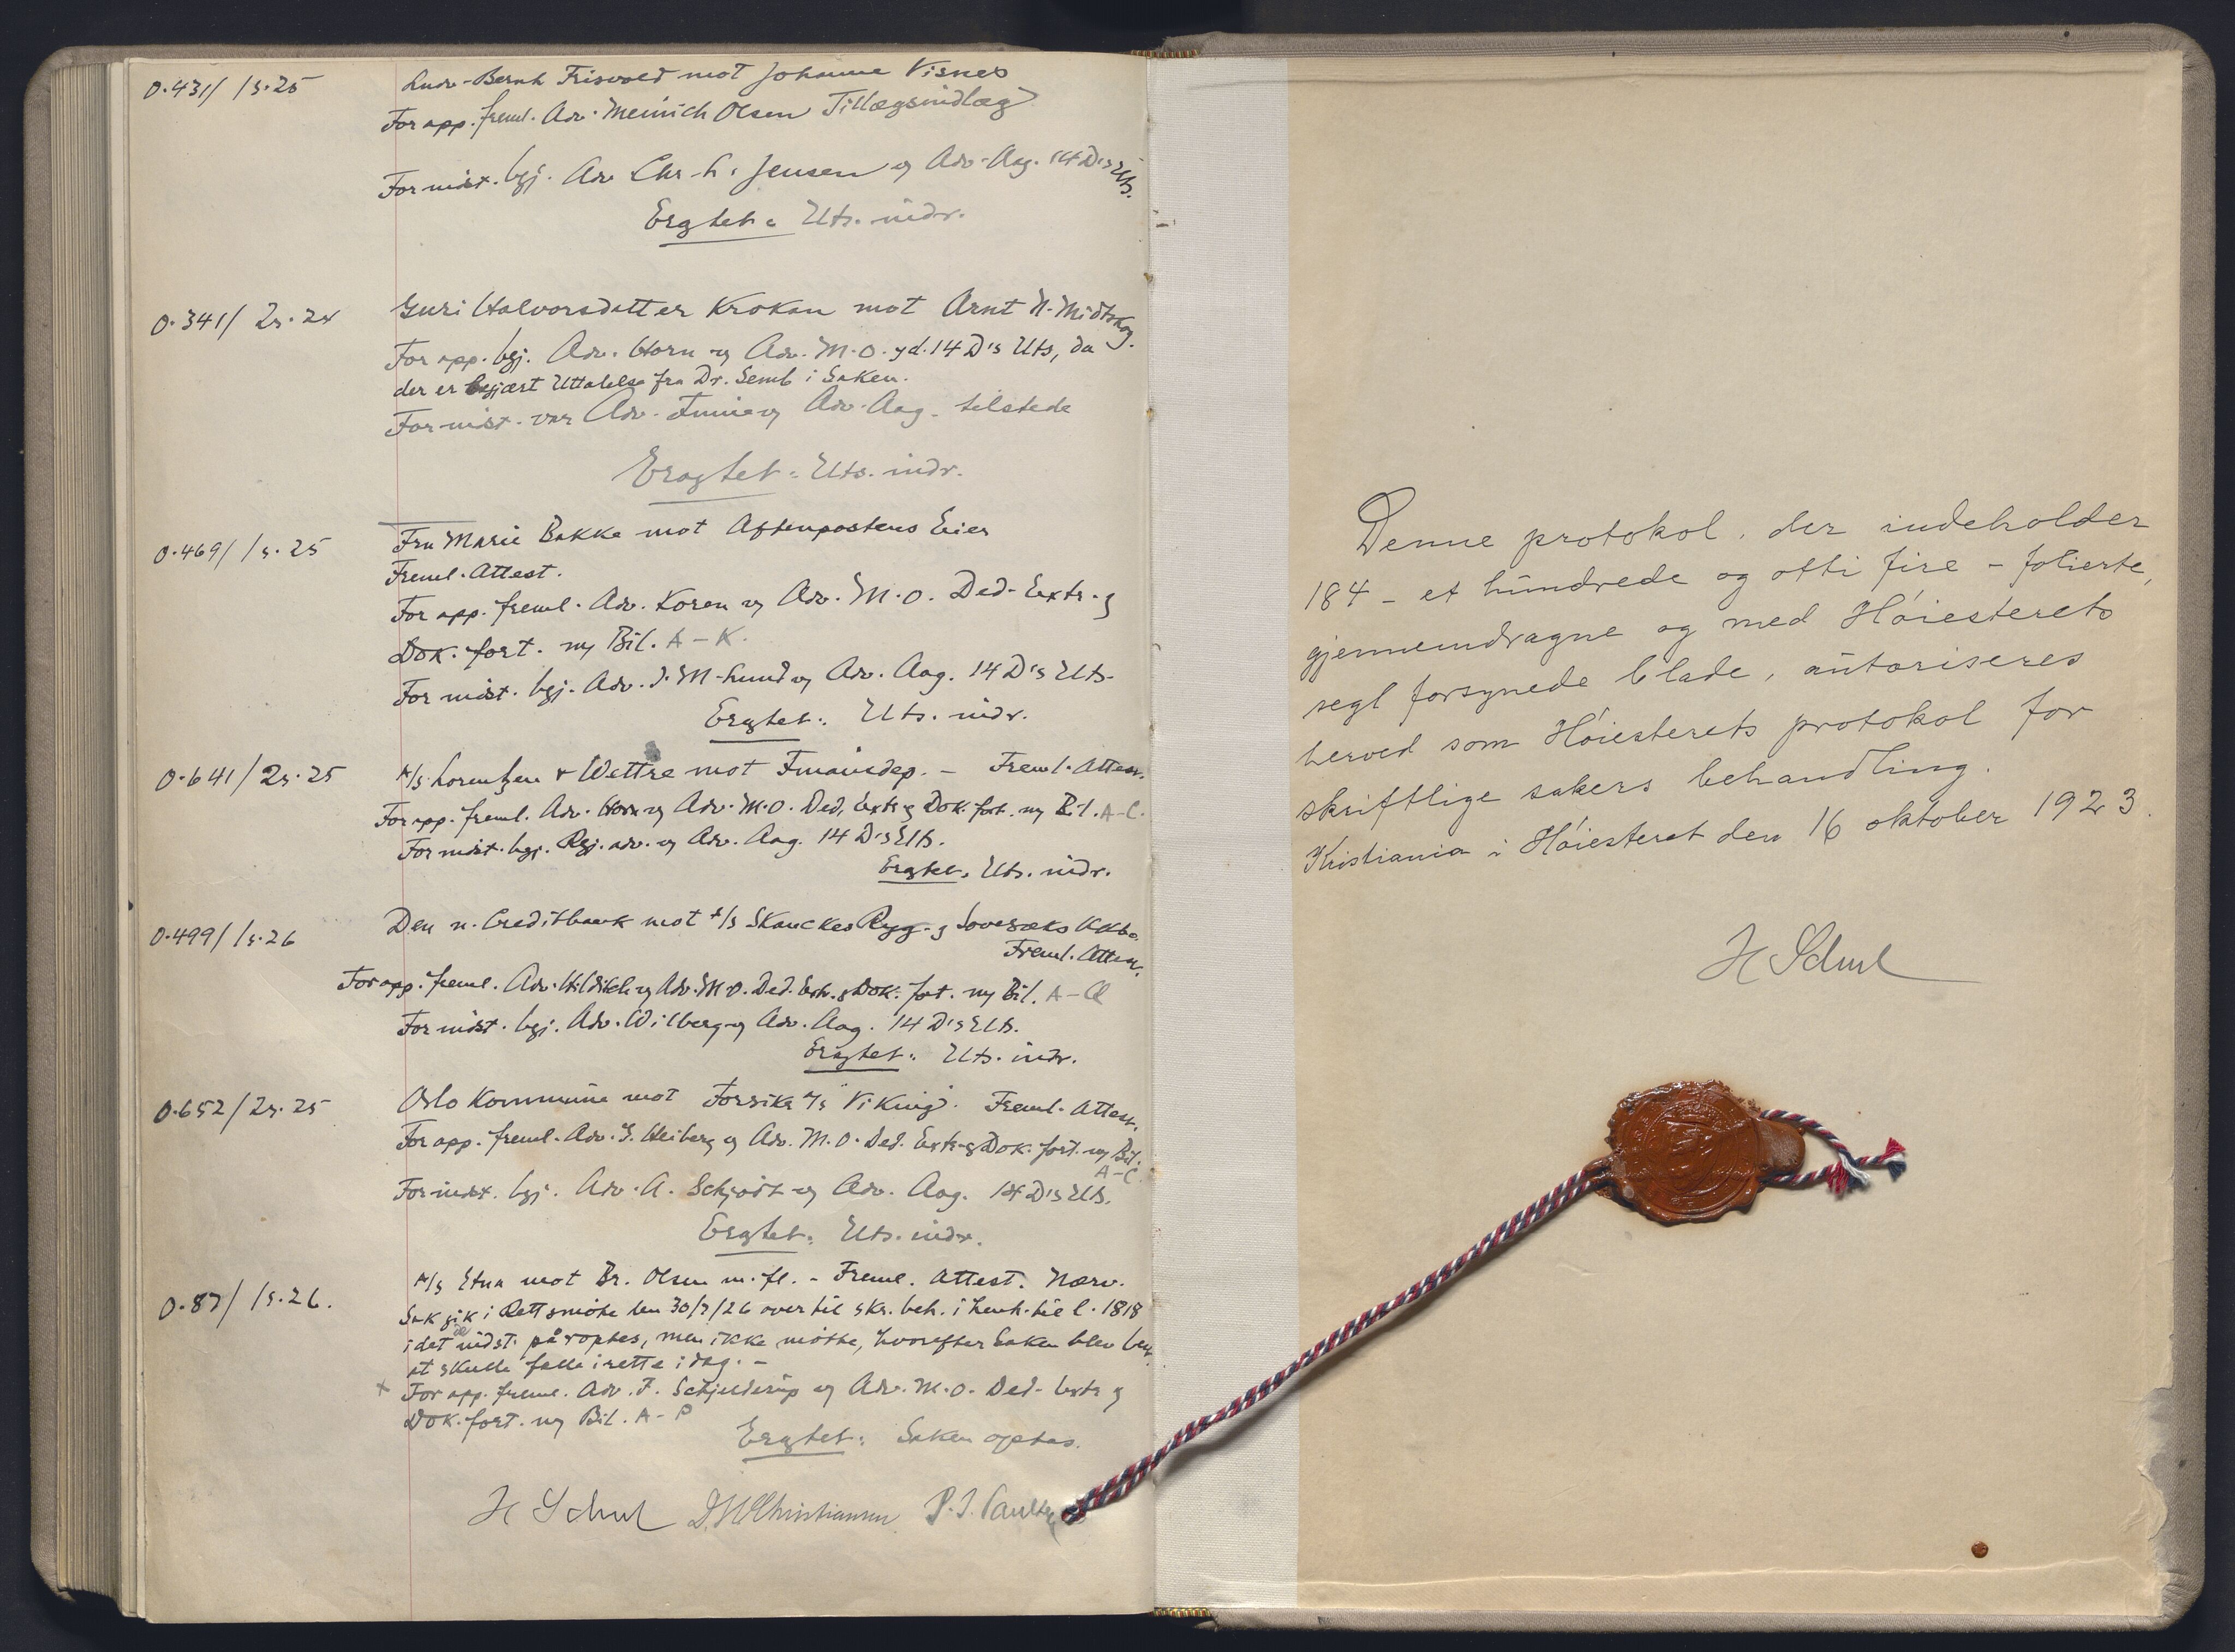 O.431/ 1s.25
Ludv-Bernh Frisvold mot Johanne Visnes
For app. freml. Adv. Meinich Olsen Tillægsindlæg
For indst. bgj. Adv Chr. L. Jensen og Adv. Aag. 14 D's Uts.
Eragtet: Uts. indr.
O.341/ 2s.24
Guri Halvorsdatter Krokan mot Arnt N. Midtskog.
For app. bgj. Adv. Horn og Adv. M.O. yd. 14 D's Uts, da
der er begjært Uttalelse fra Dr. Semb i Saken.
For indst. var Adv. og Adv. Aag. tilstede
Eragtet: Uts. indr.
O.469/ 1s.25
Fru Marie Bakke mot Aftenpostens Eier
Freml. Attest.
For app. freml. Adv. Koren og Adv. M.O. Ded. Extr. g
Dok. fort. og Bil. A-K.
For indst. bgj. Adv. J. M. Lund og Adv. Aag. 14 D's Uts.
Eragtet: Uts. indr.
O.641/ 2s.25
A/s Lorentzen & Wettre mot Finansdep. - Freml. Attest.
For app. freml. Adv. Horn og Adv. M.O. Ded, Extr g Dok. fort. og Bil. A-C.
For indst. bgj. Rgj. adv. og Adv. Aag. 14 D's Uts.
Eragtet: Uts. indr.
O.499/ 1s.26
Den n. Creditbank mot A/s Skanckes Rygg- g Soveseks
Freml. Attest.
For app. freml. Adv. Hilditch og Adv. M.O. Ded. Extr. g Dok. fort. og Bil. A-Q
For indst. bgj. Adv. Wilberg og Adv. Aag. 14 D's Uts.
Eragtet: Uts. indr.
O.652/ 2s.25
Oslo Kommune mot Forsikr A/s Viking. Freml. Attest.
For app. freml. Adv. G. Heiberg og Adv. M.O. Ded. Extr g Dok. fort. og Bil.
A-C.
For indst. bgj. Adv. A. Schjødt og Adv. Aag. 14 D's Uts.
Eragtet: Uts. indr.
O.87/ 1s.26.
A/s Etna mot Br. Olsen m.fl. - Freml. Attest. Nærv.
Sak gik i Rettsmøte den 30/7/26 over til skr. beh. i henh. til l. 1818
idet de indst. påroptes, men ikke møtte, hvorefter Saken blev
at skulle falle i rette idag. -
+ For app. freml. Adv. F. Schjelderup og Adv. M.O. Ded. Extr g
Dok. fort. og Bil. A-P
Eragtet: Saken optas.
H Scheel
Denne protokol, der indeholder
184 - et hundrede og otti fire - folierte,
gjennemdragne og med Høiesterets
segl forsynede blade, autoriseres
herved som Høiesterets protokol for
skriftlige sakers behandling.
Kristiania i Høiesteret den 16 oktober 1923.
H Scheel